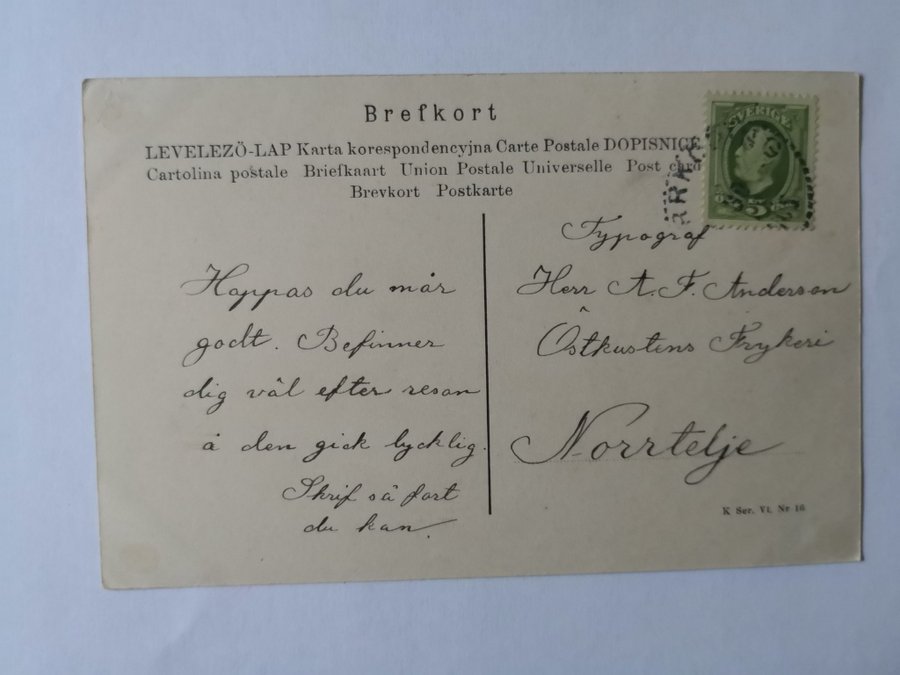 Brefkort
LEVELEZÖ-LAP Karta korespondencyjna Carte Postale DOPISNICE
Cartolina postale Briefkaart Union Postale Universelle Post card
Brevkort Postkarte
SVERIGE
5
Typograf
Herr A. F. Anderson
Östkustens Trykeri
Norrtelje
Hoppas du mår
godt. Befinner
dig väl efter resan
å den gick lycklig.
Skrif så fort
du kan.
K Ser. Vt. Nr 16